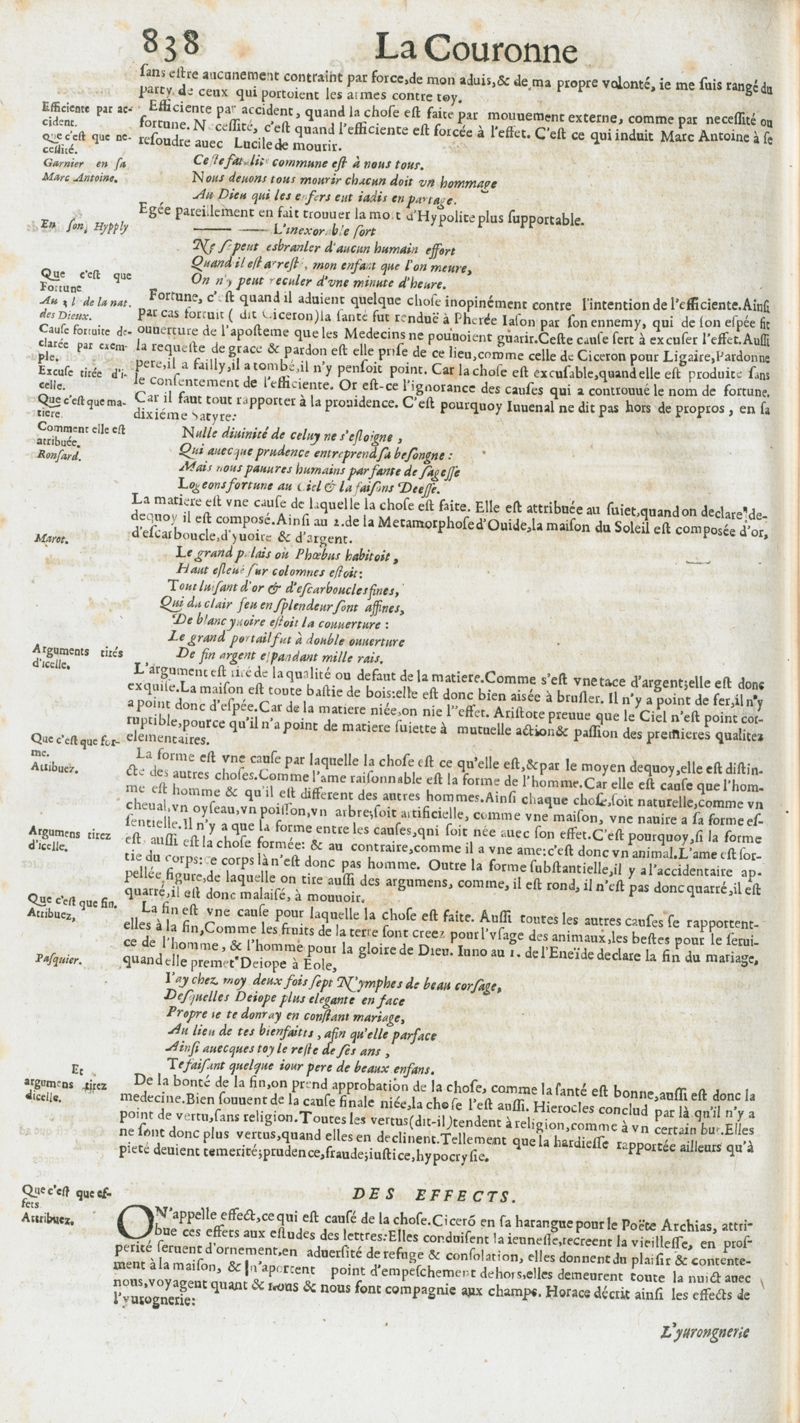 838
La Couronne
sans estre aucunement contraint par force,de mon aduis,& de ma propre volonté, ie me suis rangé du
party de ceux qui portoient les armes contre toy.
Efficiente par ac-
cident.
Efficiente par accident, quand la chose est faite par mouuement externe, comme par necessité ou
fortune. N cessité, c'est quand l'efficiente est forcée à l'effet. C'est ce qui induit Marc Antoine à se
resoudre auec Lucile de mourir.
Que c'est que ne-
cessité.
Garnier en sa
Marc Antoine.
Ceste fatalité commune est à nous tous.
Nous deuons tous mourir chacun doit vn hommage
Au Dieu qui les enfers eut iadis en partage.
Egée pareillement en fait trouuer la mort d'Hypolite plus supportable.
En son Hypply
L'inexorable sort
Ne se peut esbranler d'aucun humain effort
Quand il est arresté, mon enfant que l'on meure,
On n'y peut reculer d'vne minute d'heure.
Que c'est que
Fortune
Au 3 l de la nat.
des Dieux.
Cause fortuite de-
clarée par exem-
ple.
Excuse tirée d'i-
celle.
Que c'est que ma-
tiere.
Fortune, c'est quand il aduient quelque chose inopinément contre l'intention de l'efficiente.Ainsi
par cas fortuit ( dit Ciceron)la santé fut renduë à Pherée Iason par son ennemy, qui de son espée fit
ouuerture de l'aposteme que les Medecins ne pouuoient guarir.Ceste cause sert à excuser l'effet.Aussi
la requeste de grace & pardon est elle prise de ce lieu,comme celle de Ciceron pour Ligaire,Pardonne
pere,il a failly,il a tombé,il n'y pensoit point. Car la chose est excusable,quand elle est produite sans
le consentement de l'efficiente. Or est-ce l'ignorance des causes qui a controuué le nom de fortune.
Car il faut tout rapporter à la prouidence. C'est pourquoy Iuuenal ne dit pas hors de propros , en sa
dixiéme Satyre:
Comment elle est
attribuée.
Ronsard.
Nulle diuinité de celuy ne s'esloigne ,
Qui auecque prudence entreprend sa besongne :
Mais nous pauures humains par fante de sagesse
Logeons fortune au Ciel & la faisons Deesse.
La matiere est vne cause de laquelle la chose est faite. Elle est attribuée au suiet,quand on declare de-
dequoy il est composé.Ainsi au 2.de la Metamorphose d'Ouide,la maison du Soleil est composée d'or,
d'escarboucle,d'yuoire & d'argent.
Marot.
Le grand palais où Phœbus habitoit ,
Haut esleué sur colomnes estoit:
Tout luisant d'or & d'escarboucles fines,
Qui du clair feu en splendeur sont affines,
De blanc yuoire estoit la couuerture :
Le grand portail fut à double ouuerture
De fin argent espandant mille rais.
Arguments tirés
d'icelle.
L'argument est tiré de la qualité ou defaut de la matiere.Comme s'est vne tace d'argent;elle est donc
exquise.La maison est toute bastie de bois:elle est donc bien aisée à brusler. Il n'y a point de fer,il n'y
a point donc d'espée.Car de la matiere niée,on nie l'effet. Aristote preuue que le Ciel n'est point cor-
ruptible,pource qu'il n'a point de matiere suiette à mutuelle action& passion des premieres qualitez
elementaires.
Que c'est que for-
me.
Attribuez.
La forme est vne cause par laquelle la chose est ce qu'elle est,&par le moyen dequoy,elle est distin-
cte des autres choses.Comme l'ame raisonnable est la forme de l'homme.Car elle est cause que l'hom-
me est homme & qu'il est different des autres hommes.Ainsi chaque chose,soit naturelle,comme vn
cheual,vn oyseau,vn poisson,vn arbre;soit artificielle, comme vne maison, vne nauire a sa forme es-
sentielle.Il n'y a que la forme entre les causes,qui soit née auec son effet.C'est pourquoy,si la forme
est aussi est la chose formée: & au contraire,comme il a vne ame:c'est donc vn animal.L'ame est for-
tie du corps:ce corps là n'est donc pas homme. Outre la forme substantielle,il y a l'accidentaire ap-
pellée figure,de laquelle on tire aussi des argumens, comme, il est rond, il n'est pas donc quarré,il est
quarré,il est donc malaisé, à mouuoir.
Argumens tirez
d'icelle.
Que c'est que fin.
Attribuez,
La fin est vne cause pour laquelle la chose est faite. Aussi toutes les autres causes se rapportent-
elles à la fin,Comme les fruits de la terre sont creez pour l'vsage des animaux,les bestes pour le serui-
ce de l'homme, & l'homme pour la gloire de Dieu. Iuno au 1. de l'Eneïde declare la fin du mariage,
quand elle premet Deiope à Eole,
Pasquier.
I'ay chez moy deux fois sept Nymphes de beau corsage,
Desquelles Deiope plus elegante en face
Propre ie te donray en constant mariage,
Au lieu de tes bienfaitts , afin qu'elle parface
Ainsi auecques toy le reste de ses ans ,
Te faisant quelque iour pere de beaux enfans.
Et
argumens tirez
dicelle.
De la bonté de la fin,on prend approbation de la chose, comme la santé est bonne,aussi est donc la
medecine.Bien souuent de la cause finale niée,la chose l'est aussi. Hierocles conclud par là qu'il n'y a
point de vertu,sans religion.Toutes les vertus(dit-il)tendent à religion,comme à vn certain but.Elles
ne sont donc plus vertus,quand elles en declinent.Tellement que la hardiesse rapportée ailleurs qu'à
pieté deuient temerité;prudence,fraude;iustice,hypocrysie.
DES EFFECTS.
Que c'est que ef-
fets
Attribuez.
ON'appelle effect,ce qui est causé de la chose.Ciceró en sa harangue pour le Poëte Archias, attri-
bue ces effets aux estudes des lettres:Elles conduisent la ieunesse,recreent la vieillesse, en pros-
perité seruent d'ornement,en aduersité de refuge & consolation, elles donnent du plaisir & contente-
ment à la maison, & n'aportent point d'empeschement dehors,elles demeurent toute la nuict auec
nous,voyagent quant & nous & nous font compagnie aux champs. Horace décrit ainsi les effects de
l'yurognerie:
L'yurongnerie